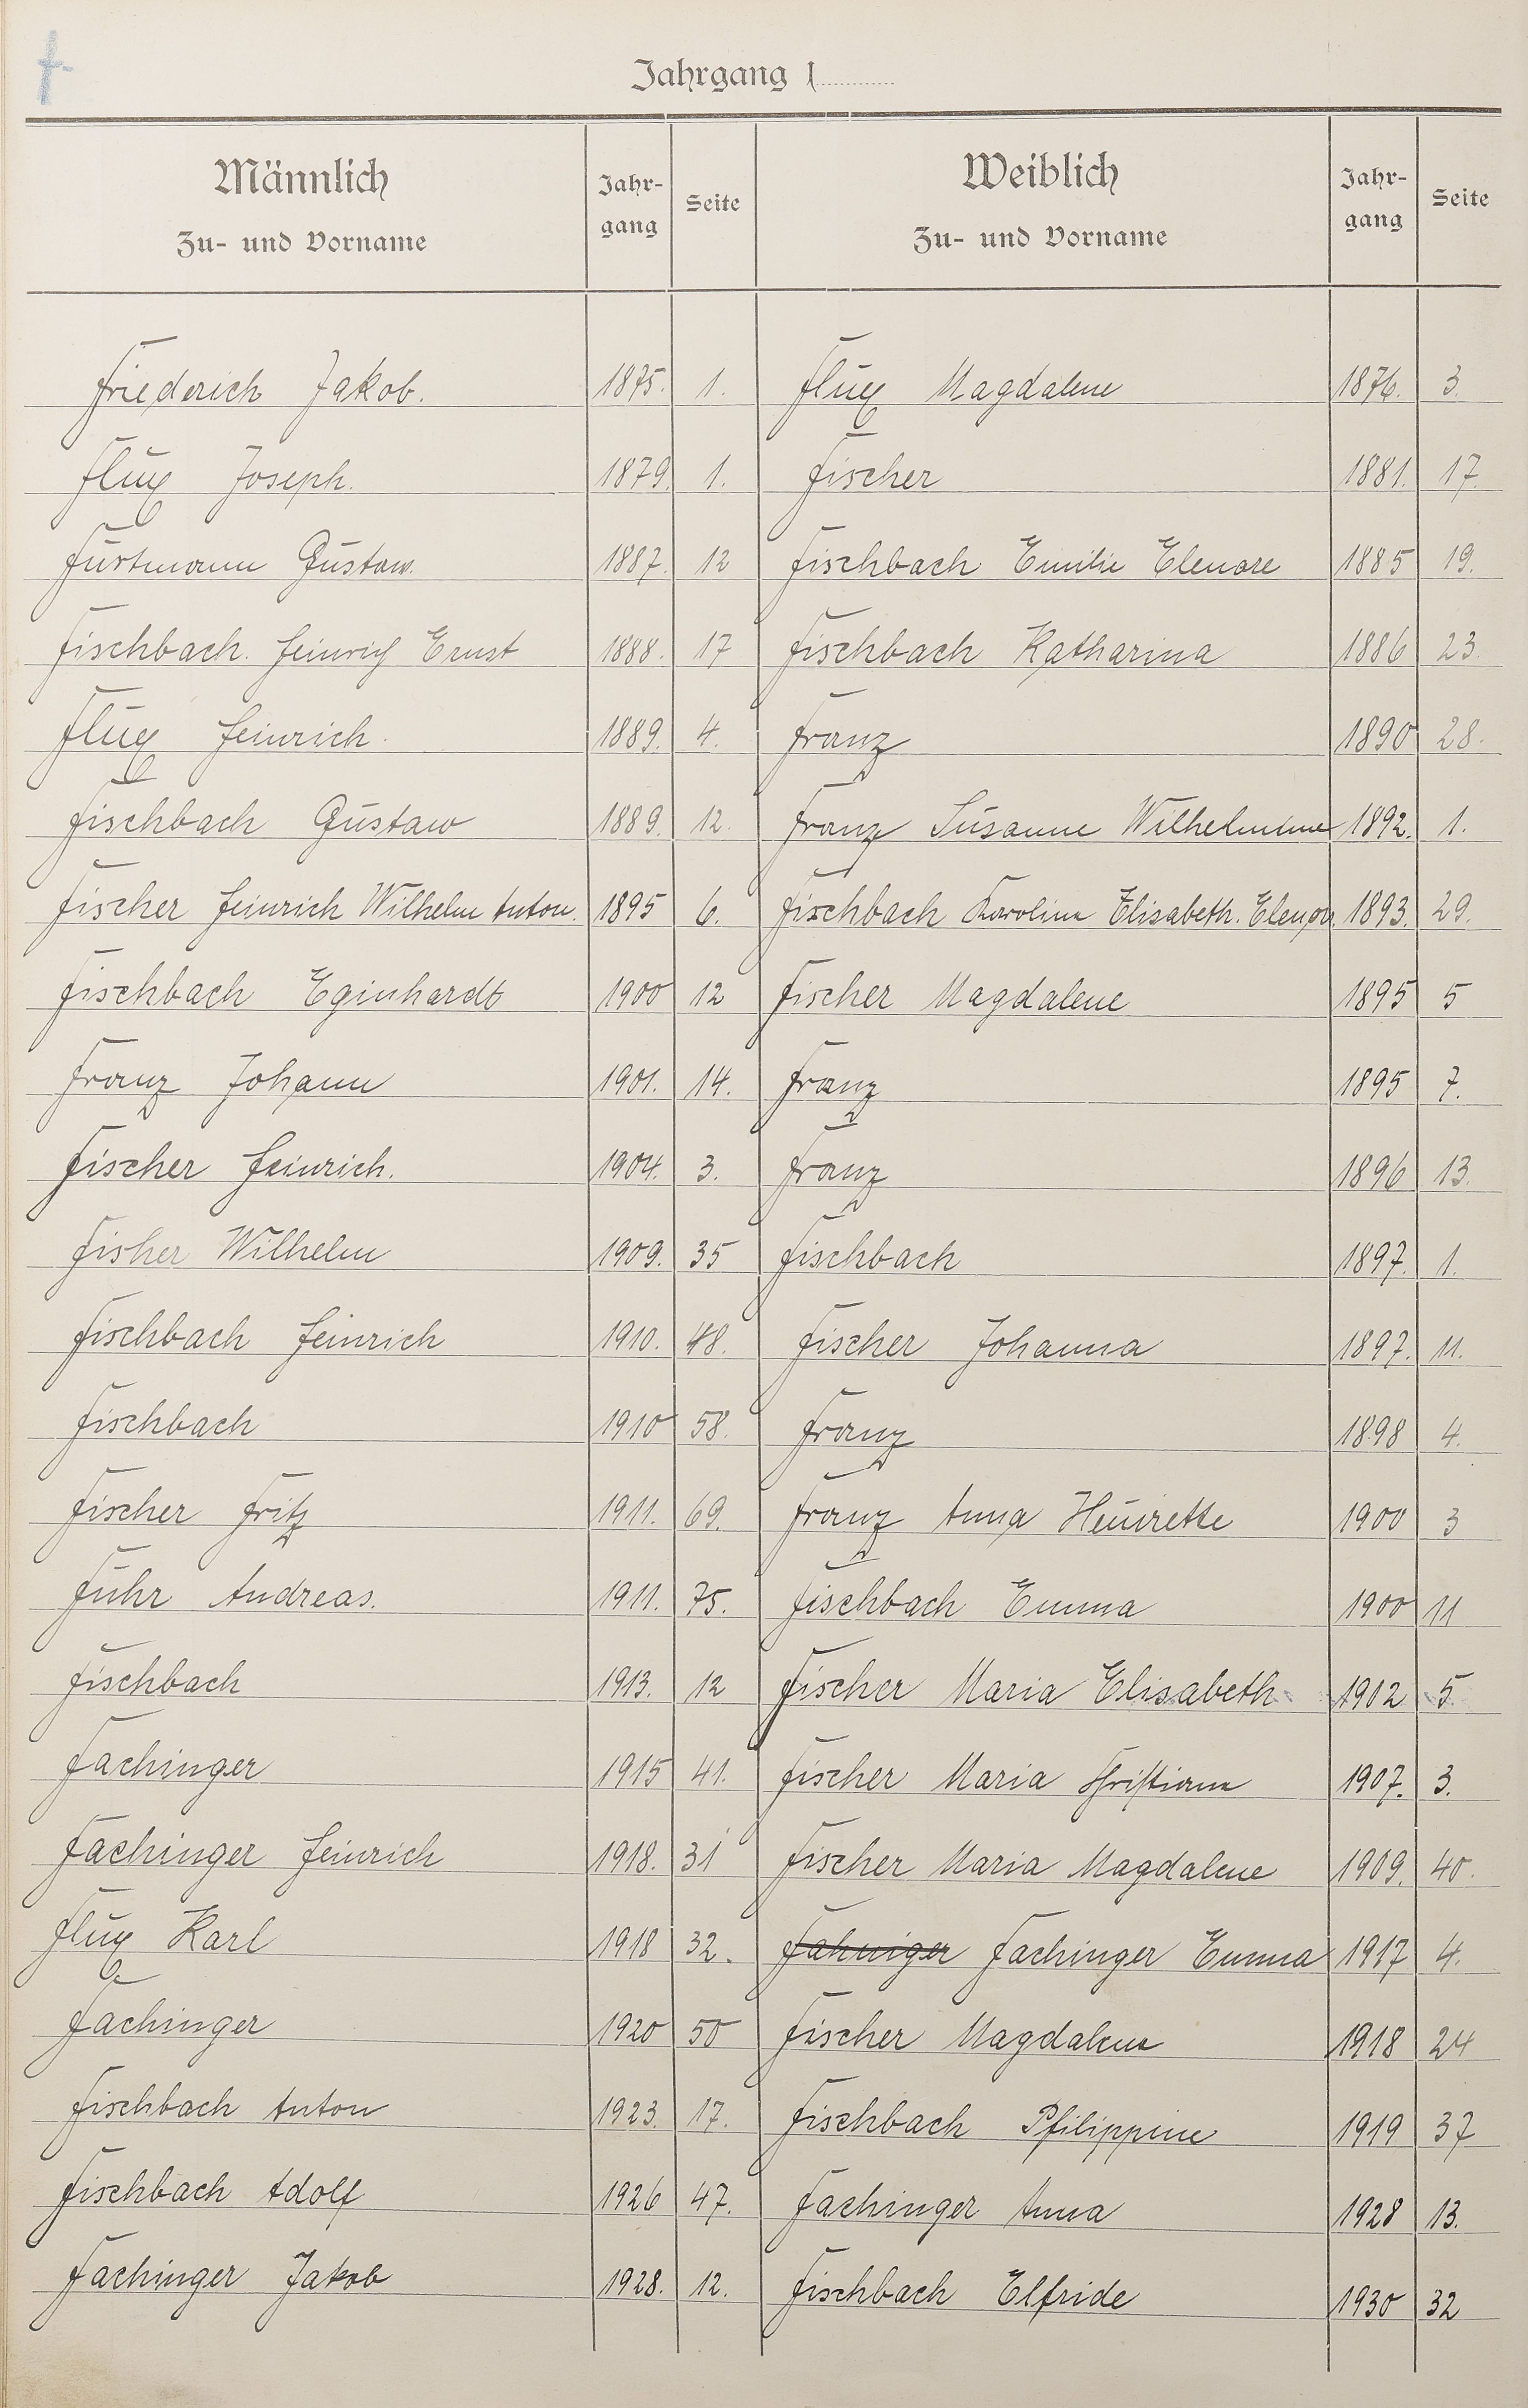 F
Jahrgang 1
Männlich Jahr- Seite Weiblich Jahr- Seite
Zu- und Vorname gang Zu- und Vorname gang
Friederich Jakob. 1875. 1. Flug Magdalene 1876. 3.
Flug Joseph. 1879. 1. Fischer 1881. 17.
Furtmann Gustaw. 1887. 12 Fischbach Emilie Elenore 1885 19.
Fischbach. Heinrich Ernst 1888. 17 Fischbach Katharina 1886 23.
Flug Heinrich. 1889. 4. Franz 1890 28.
Fischbach Gustaw 1889. 12. Franz Susanne Wilhelmine 1892. 1.
Fischer Heinrich Wilhelm Anton. 1895 6. Fischbach Karolina Elisabeth. Elenor. 1893. 29.
Fischbach Eginhardt 1900 12 Fischer Magdalene 1895 5
Franz Johann 1901. 14. Franz 1895 7.
Fischer Heinrich. 1904. 3. Franz 1896 13.
Fisher Wilhelm 1909. 35 Fischbach 1897. 1.
Fischbach Heinrich 1910. 48. Fischer Johanna 1897. 11.
Fischbach 1910 58. Franz 1898 4.
Fischer Fritz 1911. 69. Franz Anna Henirette 1900 3
Fuhr Andreas. 1911. 75. Fischbach Emma 1900 11
Fischbach 1913. 12 Fischer Maria Elisabeth 1902 5.
Fachinger 1915 41. Fischer Maria Christiane 1907. 3.
Fachinger Heinrich 1918. 31 Fischer Maria Magdalene 1909. 40.
Flug Karl 1918 32. Fahniger Fachinger Emma 1917 4.
Fachinger 1920 50 Fischer Magdalena 1918 24
Fischbach Anton 1923. 17. Fischbach Philippine 1919 37
Fischbach Adolf 1926 47. Fachinger Anna 1928 13.
Fachinger Jakob 1928. 12. Fischbach Elfride 1930 32